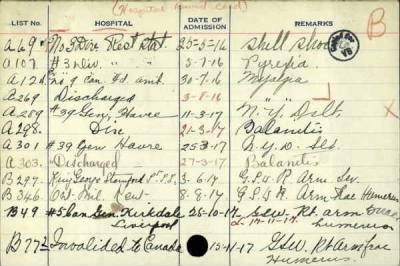 (Hospital record card)
B
LIST NO. HOSPITAL DATE OF ADMISSION REMARKS
A69 No 3 Div. Rest Stat. 25-5-16 Shell Shock
A107. #3 Div. " " 5-7-16 Pyrexia
A12 no 9 Can Fd. Amb. 30-7-16 Myalgia
A269 Discharged 3-8-16
A289 #39 Gen. Havre 11-3-17 N.Y.D. Slt.
A298. Dis 21-3-17 Balanitis
A301 #39 Gen Havre 25 3-17 N.Y.D. Slt.
A303. Discharged 27-3-17 Balanitis
B297. King George Stamford St. 3-6-17 G.S.W. R Arm Sev.
B346 Ont. Mil. Kent 8-8-17 G.S.W. R Arm Frac Humerus
B49 #5 Can Gen. Kirkdale 25-10-17 G.S.W. Rt. arm
Liverpool humerus
B77 Invalided to Canada 15-11-17 GSW Rt Arm frac
Humerus.